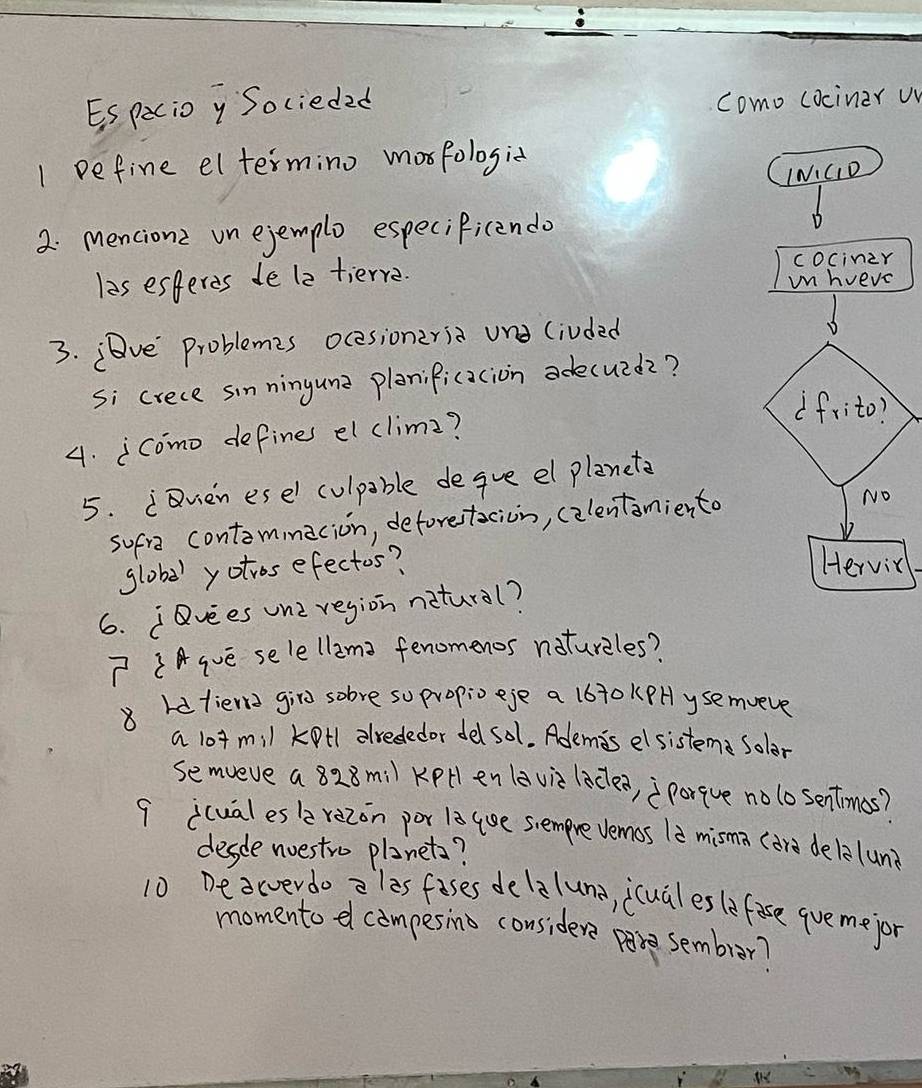 Espacio y Sociedad
1 Define el término morfologia
2. Menciona un ejemplo especificando
las esferas de la tierra.
3. ¿Qué problemas ocasionaria una Ciudad
si crece sin ninguna planificación adecuada?
4. ¿Cómo defines el clima?
5. ¿Quién es el culpable de que el planeta
sufra contaminación, deforestación, calentamiento
global y otros efectos?
6. ¿Qué es una región natural?
7 ¿A qué se le llama fenomenos naturales?
8 La tierra gira sobre su propio eje a 1670 KPH y se mueve
a 107 mil KPH alrededor del sol. Además el sistema Solar
se mueve a 828 mil KPH en la via láctea, ¿porque no lo sentimos?
9 ¿cuál es la razón por la que siempre vemos la misma cara de la luna
desde nuestro planeta?
10 De acuerdo a las fases de la luna, ¿cuál es la fase que mejor
momento el campesino considera para sembrar?
Como cocinar un
INICIO
cocinar
un huevo
¿frito?
NO
Hervir